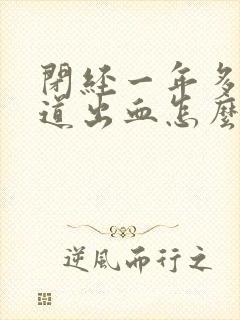 閉經一年多
道出血怎麼
逆風而行之